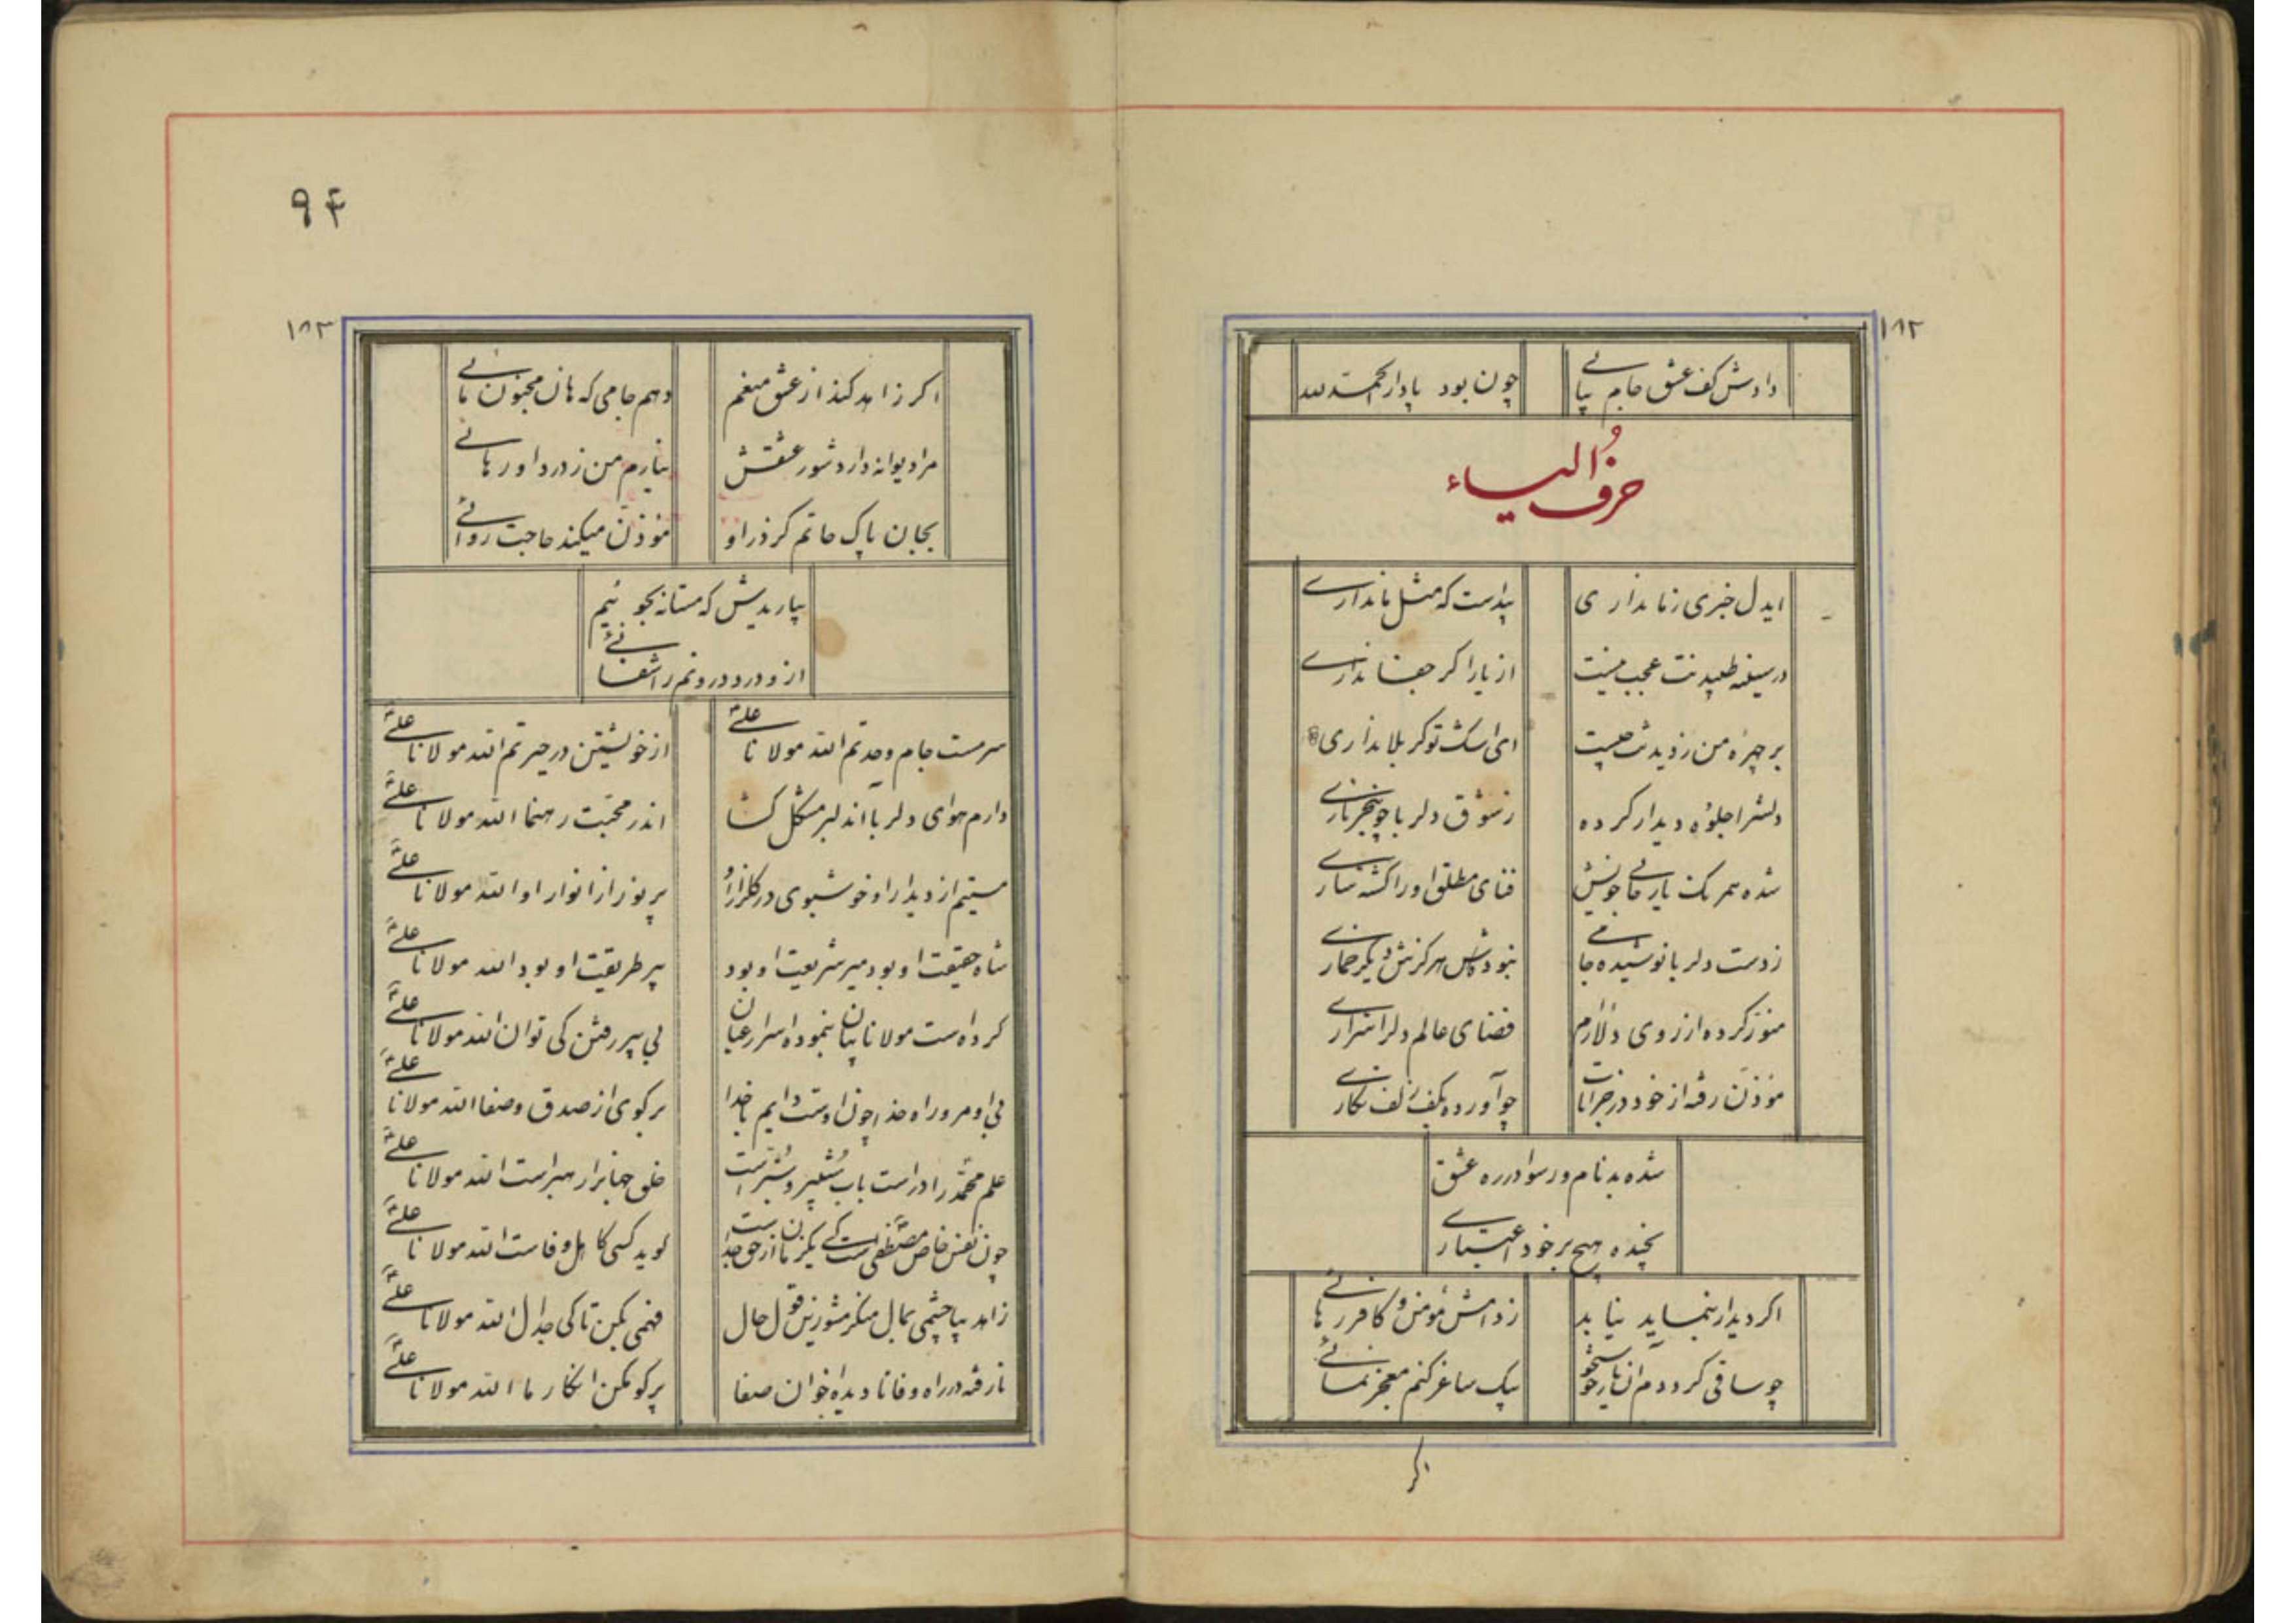 ۱۸۲
دادش کف عشق جام پیاپی چون بود یادار الحمد لله
حرف الیاء
ایدل خبری زما نداری پیداست که مثل ما نداری
در سینه طپیدنت عجب نیست از یار اگر جفا نداری
بر چهره من زدیدنت چیست ای اشک تو کربلا نداری
دلش را جلوهٔ دیدار کرده ز شوق دلربا چو
شده همرنگ یار فنای مطلق او را گشته
زدست دلربا نوشیده جامی نبوده هرگزش دیگر خماری
منور کرده از روی دلارام فضای عالم دلرا
مؤذن رفته از خود در خرابات چو آورده بکف زلف نگاری
شده بدنام و رسوا در ره عشق
هیچ بر خود اعتباری
اگر دیدار بنماید نیابد زدامش مؤمن و کافر رهائی
چو ساقی گردد آن یار بیک ساغر کنم معجز نمائی
اگر
۹۴
۱۸۳
اگر زاهد کند از عشق منعم دهم جامی که هان مجنون مائی
مرا دیوانه دارد شور عشقش نیارم من زدرد او رهائی
بجان پاک حاتم گر ذر او مؤذن میکند حاجت روائی
بیاریدش که مستانه بگوئیم
از و درد درونم را شفائی
سرمست جام وحدتم الله مولانا علی از خویشتن در حیرتم الله مولانا علی
دارم هوای دلربا آن دلبر مشکل گشا اندر محبت رهنما الله مولانا علی
مستیم از دیدار او خوشبوی در گلزار او پر نور از انوار او الله مولانا علی
شاه حقیقت او بود میر شریعت او بود پیر طریقت او بود الله مولانا علی
کرده است مولانا بیان بنموده اسرار عیان بی پیر رفتن کی توان الله مولانا علی
بی او مرو راه خدا چون اوست دایم با خدا بر گوی از صدق و صفا الله مولانا علی
علم محمد را در است باب شبیر و شبر است خلق جهانرا رهبر است الله مولانا علی
چون نفس خاص مصطفی است کی یکزمان از حق جداست گوید کسی کاهل وفاست الله مولانا علی
زاهد بیا چشمی بمال منکر مشو زین قول حال فهمی بکن تا کی جدال الله مولانا علی
نارفته در راه وفا نادیده اخوان صفا بر گو مکن انکار ما الله مولانا علی